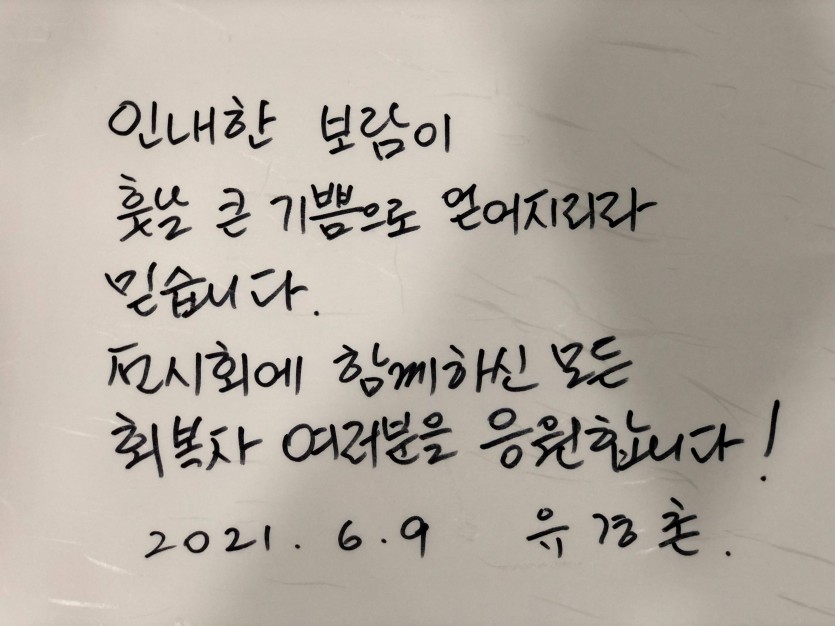 인내한 보람이
훗날 큰 기쁨으로 얻어지리라
믿습니다.
전시회에 함께하신 모든
회복자 여러분을 응원합니다!
2021. 6. 9 유경촌.